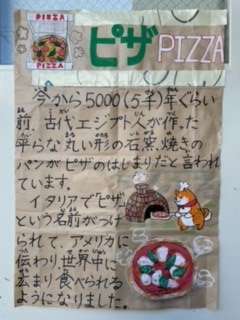 PIZZA
PIZZA
ピザ PIZZA
今から5000(5千)年ぐらい
前、古代エジプト人が作った
平らな丸い形の石窯焼きの
パンがピザのはじまりだと言われ
ています。
イタリアでピザ
という名前がつけ
られて、アメリカに
伝わり世界中に
広まり食べられる
ようになりました。